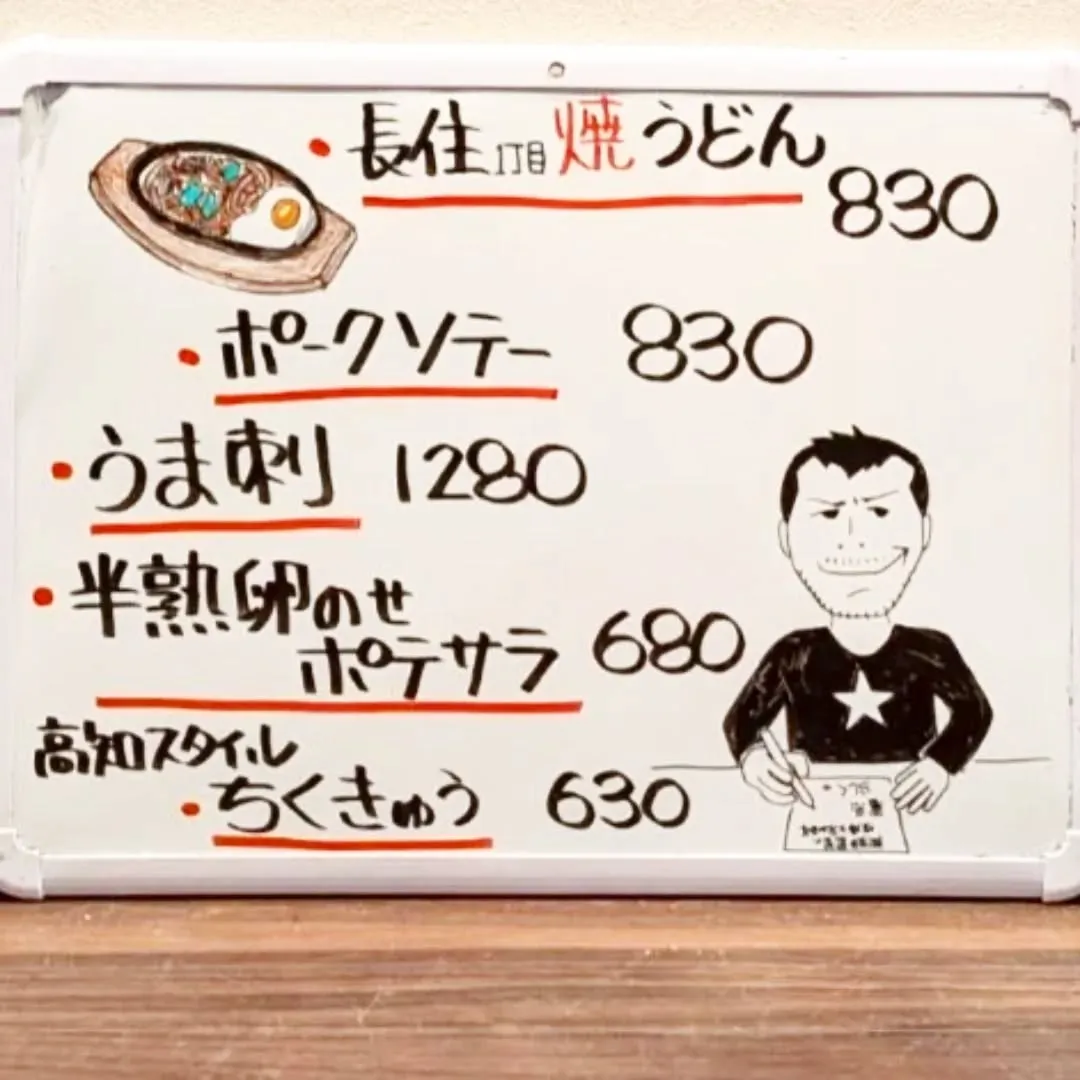 ・長住1丁目焼うどん 830
・ポークソテー 830
・うま刺 1280
・半熟卵のせ
ポテサラ 680
高知スタイル
・ちくきゅう 630